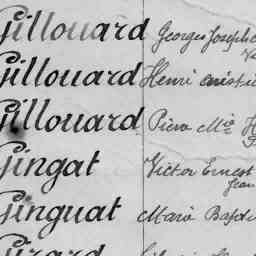 Gillouard Georges Joseph
Gillouard Henri
Gillouard Pierre Mie
Gingat Victor Ernest
Jean
Ginguat Marie
Girard